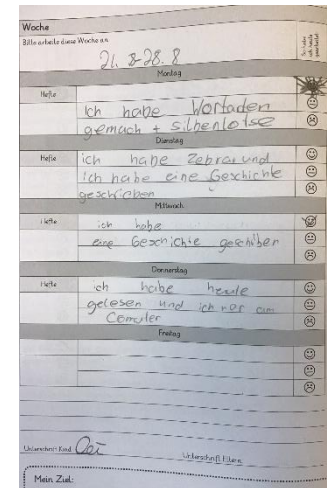 Woche
Bitte arbeite diese Woche an
21. 8-28. 8
Montag
Hefte
Ich habe Wortaden
gemach + silbenlotse
Dienstag
Hefte
ich habe Zebra und
ich habe eine Geschichte
geschrieben
Mittwoch
Hefte
ich habe
eine Geschichte geschiben
Donnerstag
Hefte
ich habe heute
gelesen und ich war am
Freitag
Unterschrift Kind
Unterschrift Eltern
Mein Ziel: